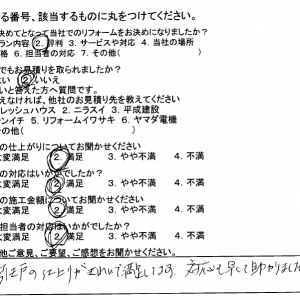 る番号、該当するものに丸をつけてください。
決めてとなって当社でのリフォームをお決めになりましたか?
ラン内容 2. 評判 3. サービスや対応 4. 当社の場所
格 6. 担当者の対応 7. その他( )
でもお見積りを取られましたか?
はい 2. いいえ
いと答えた方へ質問です。
えなければ、他社のお見積り先を教えてください
レッシュハウス 2. ニラスイ 3. 平成建設
ンイチ 5. リフォームイワサキ 6. ヤマダ電機
その他( )
の仕上がりについてお聞かせください
大変満足 2. 満足 3. やや不満 4. 不満
の対応はいかがでしたか?
大変満足 2. 満足 3. やや不満 4. 不満
の施工金額についてお聞かせください
大変満足 2. 満足 3. やや不満 4. 不満
担当者の対応はいかがでしたか?
大変満足 2. 満足 3. やや不満 4. 不満
他ご意見、ご要望、ご感想をお聞かせください。
の仕上りがきれいで満足してます。対応も早くて助かりました